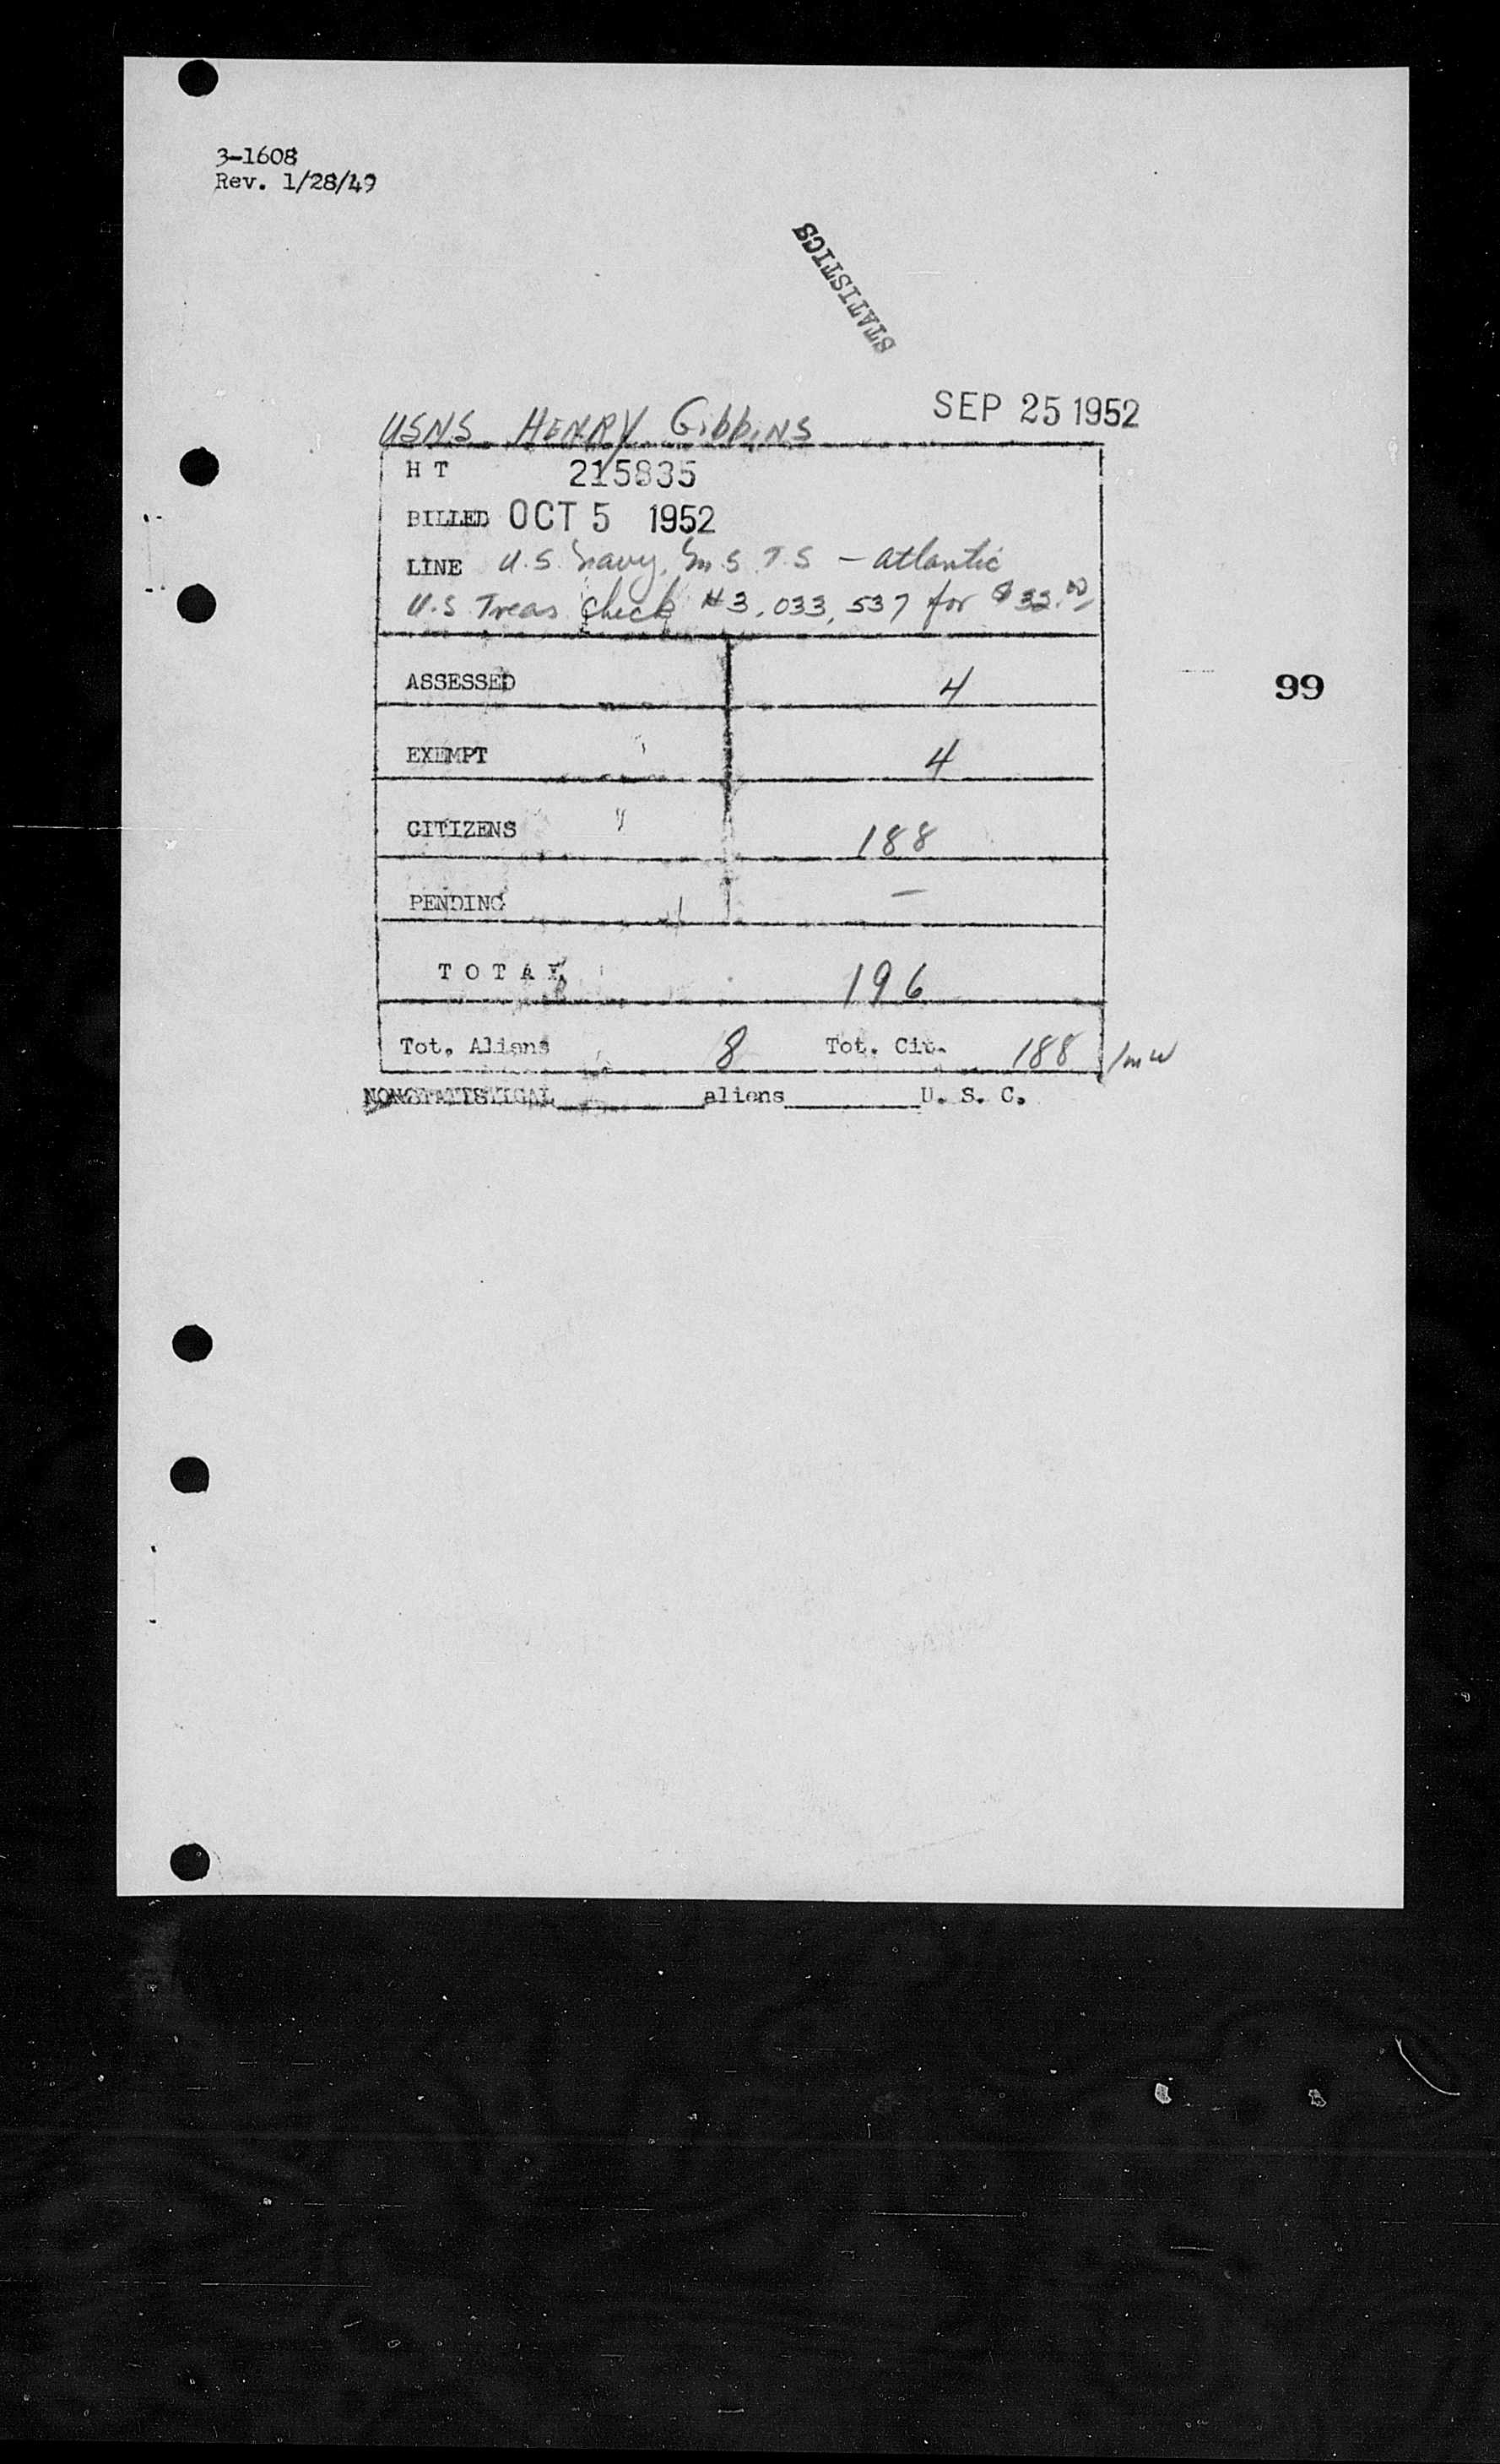 3-1608
Rev. 1/28/49
STATISTICS
SEP 25 1952
USNS HENRY GibbiNS
H T 215835
BILLED OCT 5 1952
LINE U.S. Navy, M.S.T.S - Atlantic
U.S Treas Check #3,033,537 for $32.00
ASSESSED 4
99
EXEMPT 4
CITIZENS 188
PENDING —
T O T A L 196
Tot. Aliens 8 Tot. Cit. 188 /mw
NONSTATISTICAL aliens U. S. C.